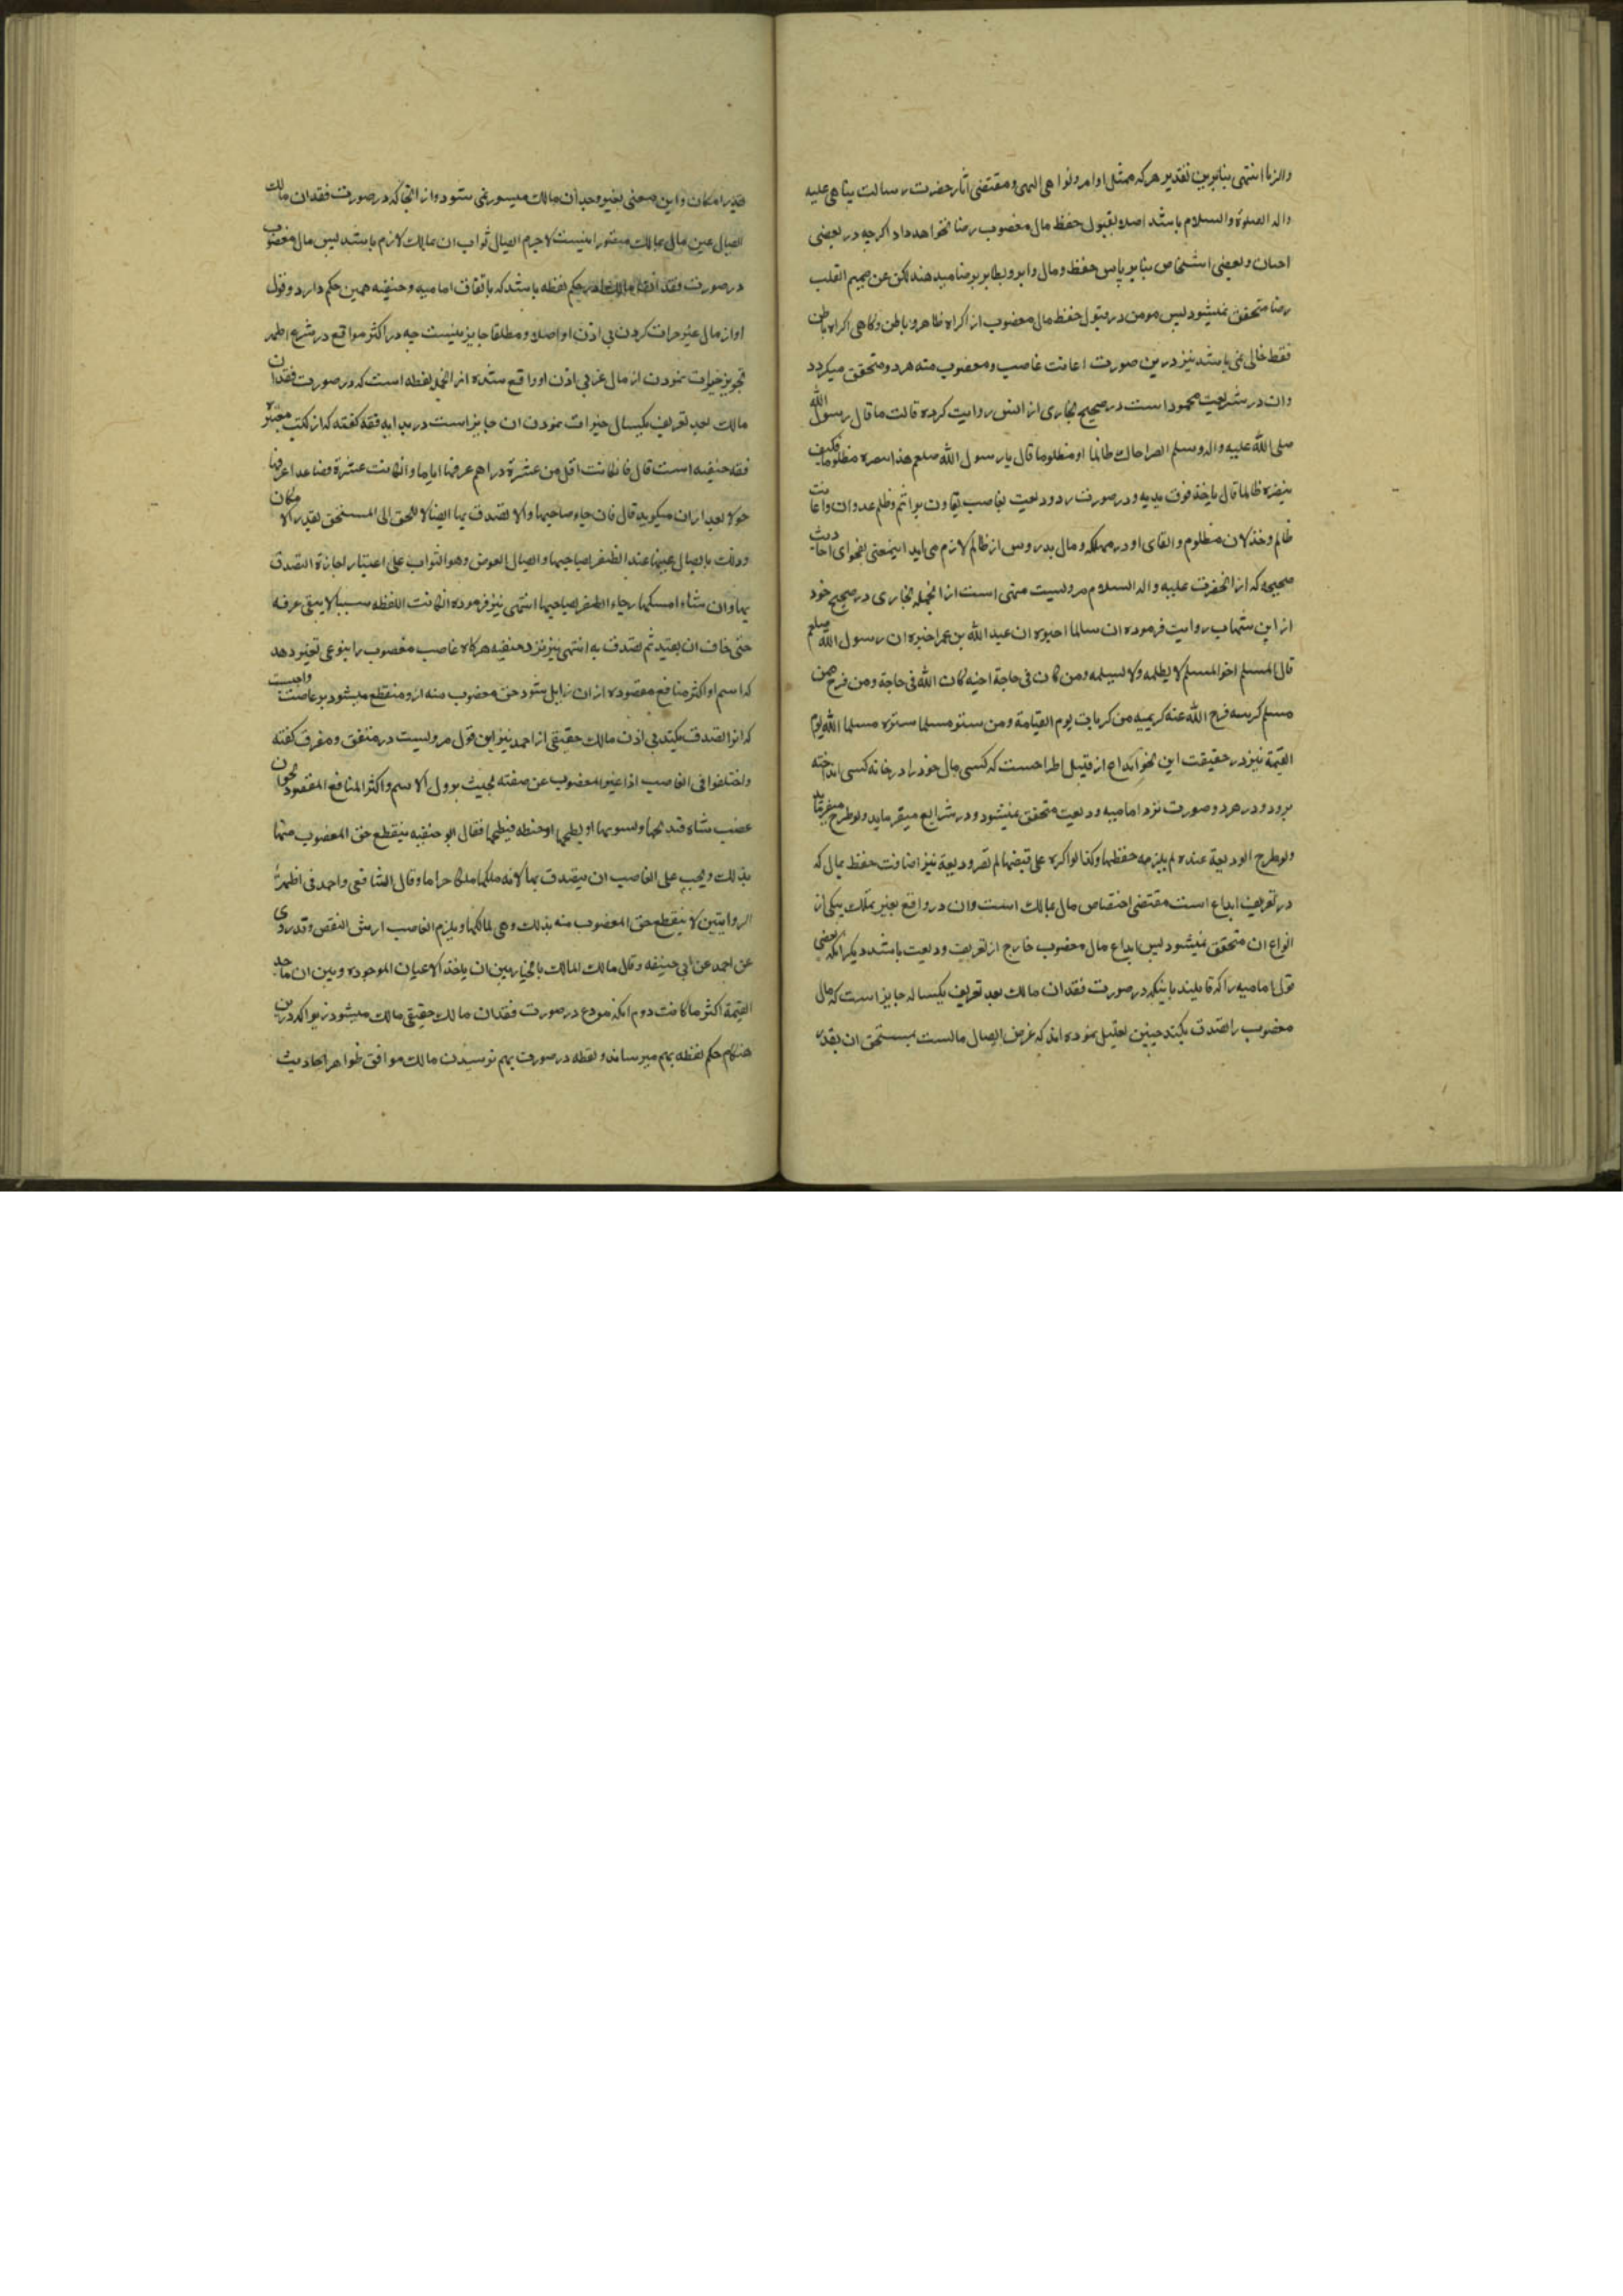 والزنا انتهی بنابرین تقدیر هر که ممتثل اوامر و نواهی الهی و مقتضی آثار حضرت رسالت پناهی علیه
واله الصلوة والسلام باشد اصلا بقبول حفظ مال مغصوب رضا نخواهد داد اگرچه در بعضی
احیان و بعضی اشخاص بنابر پاس حفظ و مال و ابرو بظاهر برضا میدهند لکن عن صمیم القلب
رضا متحقق نمیشود پس مومن در قبول حفظ مال مغصوب از اکراه ظاهر و باطن و کاهی اکراه باطن
فقط خالی نمی باشد نیز درین صورت اعانت غاصب و مغصوب منه هر دو متحقق میکردد
وان در شریعت محمود است در صحیح بخاری از انس روایت کرده قالت ما قال رسول الله
صلی الله علیه واله وسلم انصر اخاک ظالما او مظلوما قال یا رسول الله صلعم هذا ننصره مظلوما فکیف
ینصره ظالما قال یاخذ فوق یدیه و در صورت رد ودیعت بغاصب تعاون بر اثم و ظلم و عدوان و اعانت
ظالم و خذلان مظلوم و القای او در مهلکه و مال بدر وس از ظالم لازم می اید اینمعنی بفحوای احادیث
صحیحه که از انحضرت علیه واله السلام مرویست منهی است از انجمله بخاری در صحیح خود
از ابن شهاب روایت فرموده ان سالما اخبره ان عبد الله بن عمر اخبره ان رسول الله صلعم
قال المسلم اخو المسلم لا یظلمه ولا یسلمه ومن کان فی حاجة اخیه کان الله فی حاجة ومن فرج عن
مسلم کربه فرج الله عنه کربة من کربات یوم القیامة ومن ستر مسلما ستره مسلما الله یوم
القیمة نیز در حقیقت این نحو ایداع از قبیل اطراحست که کسی مال خود را در خانه کسی انداخته
برود و در هر دو صورت نزد امامیه ودیعت متحقق نمیشود و در شرایع میفرماید و لو طرح
ولو طرح الودیعة عنده لم یلزمه حفظها وکذا لو اکره علی قبضها لم تصر ودیعة نیز اضافت حفظ بمال که
در تعریف ایداع است مقتضی اختصاص مال بمالک است وان در واقع بغیر تملک بیکی از
انواع ان متحقق نمیشود پس ایداع مال مغصوب خارج از تعریف ودیعت باشد دیکر انکه بعضی
قول امامیه را که قایلیند باینکه در صورت فقدان مالک بعد تعریف یکساله جایز است که مال
مغصوب را تصدق بکند چنین تعلیل نموده اند که غرض ایصال مالست بمستحق ان بقدر
قدر امکان و این معنی بغیر وجدان مالک میسور نمی شود و از انجا که در صورت فقدان مالک
ایصال عین مال بمالک مقدور نیست لاجرم ایصال ثواب ان بمالک لازم باشد پس مال مغصوب
در صورت فقدان مالک در حکم لقطه باشد که باتفاق امامیه و حنفیه همین حکم دارد و قول
او از مال غیر خیرات کردن بی اذن او اصلا و مطلقا جایز نیست چه در اکثر مواقع در شرع اطهر
تجویز خیرات نمودن از مال غیر بی اذن او واقع شده از انجمله لقطه است که در صورت فقدان
مالک بعد تعریف یکسال خیرات نمودن ان جایز است در هدایه فقه کفته که از کتب معتبره
فقه حنفیه است قال فان کانت اقل من عشرة دراهم عرفها ایاما وان کانت عشرة فصاعدا عرفها
حولا بعد ازان میکوید قال فان جاء صاحبها والا تصدق بها ایصالا للحق الی المستحق بقدر الامکان
وذلک بایصال عینها عند الظفر بصاحبها وایصال العوض وهو الثواب علی اعتبار اجازة التصدق
بها وان شاء امسکها رجاء الظفر بصاحبها انتهی نیز فرموده ان کانت اللقطه شیئا لا یبقی عرفه
حتی خاف ان یفسد ثم تصدق به انتهی نیز نزد حنفیه هرکاه غاصب مغصوب را بنوعی تغییر دهد
که اسم او اکثر منافع مقصوده ازان زایل شود حق مغصوب منه ازو منقطع میشود بر غاصب واجبست
که انرا تصدق بکند بی اذن مالک حقیقی از احمد نیز این قول مرویست در متفق و مفرق کفته
واختلفوا فی الغاصب اذا غیر المغصوب عن صفته بحیث یزول الاسم واکثر المنافع المقصود نحو ان
غصب شاة فذبحها وشواها او یطبخها او حنطه فیطحنها فقال ابو حنیفه ینقطع حق المغصوب منها
بذلک ویجب علی الغاصب ان یتصدق بها لانه ملکها ملکا حراما وقال الشافعی واحمد فی اظهر
الروایتین لا ینقطع حق المغصوب منه بذلک وهی لمالکها ویلزم الغاصب ارش النقص وقد روی
عن احمد عن ابی حنیفه وقال مالک المالک بالخیار بین ان یاخذ الاعیان الموجوده وبین ان یاخذ
القیمة اکثر ما کانت دوم انکه مودع در صورت فقدان مالک حقیقی مالک میشود زیرا که درین
هنکام حکم لقطه بهم میرساند و لقطه در صورت بهم نرسیدن مالک موافق ظواهر احادیث